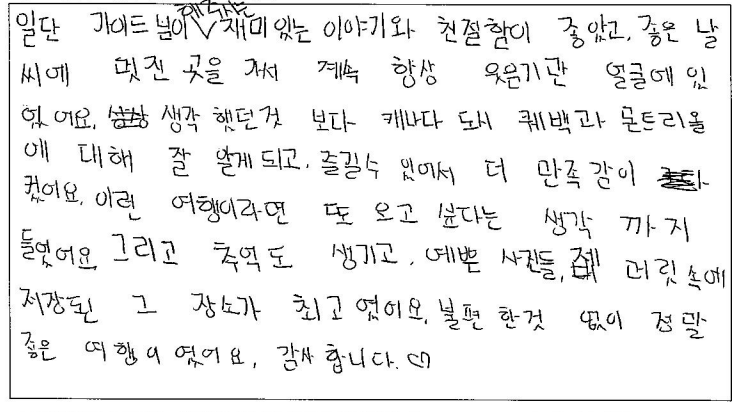 일단 가이드 분이 해주시는 재미있는 이야기와 친절함이 좋았고, 좋은 날
씨에 멋진 곳을 가서 계속 항상 웃음기만 얼굴에 있
었어요. 생각 했던것 보다 캐나다 도시 퀘백과 몬트리올
에 대해 잘 알게 되고, 즐길수 있어서 더 만족감이
컸어요. 이런 여행이라면 또 오고 싶다는 생각 까지
들었어요. 그리고 추억도 생기고, 예쁜 사진들, 제 머릿속에
저장된 그 장소가 최고 였어요. 불편 한것 없이 정말
좋은 여행이 였어요, 감사 합니다. ♡